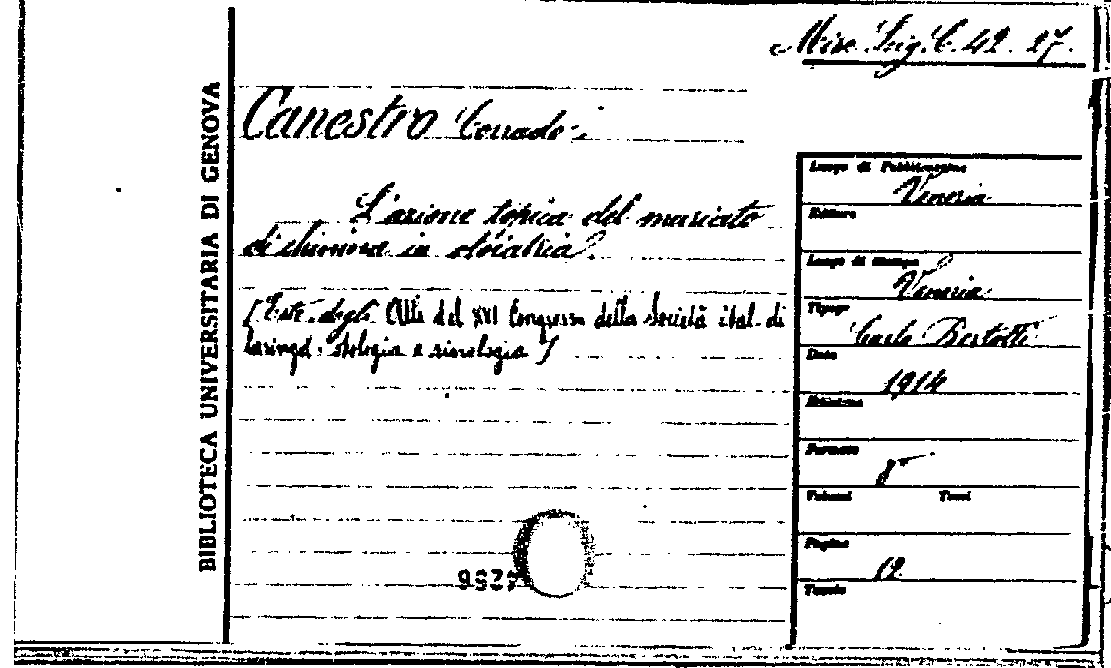 Misc. Lig. C. 42. 27.
BIBLIOTECA UNIVERSITARIA DI GENOVA
Canestro Corrado.
L'azione topica del muriato
di chinina in otoiatria.
[Estr. degli Atti del XVI Congresso della Società ital. di
laringol. otologia e rinologia]
Luogo di Pubblicazione
Venezia
Editore
Luogo di stampa
Venezia
Tipogr.
Carlo Bertotti
Data
1914
Edizione
Formato
8°
Volumi Tomi
Pagine
12
Tavole